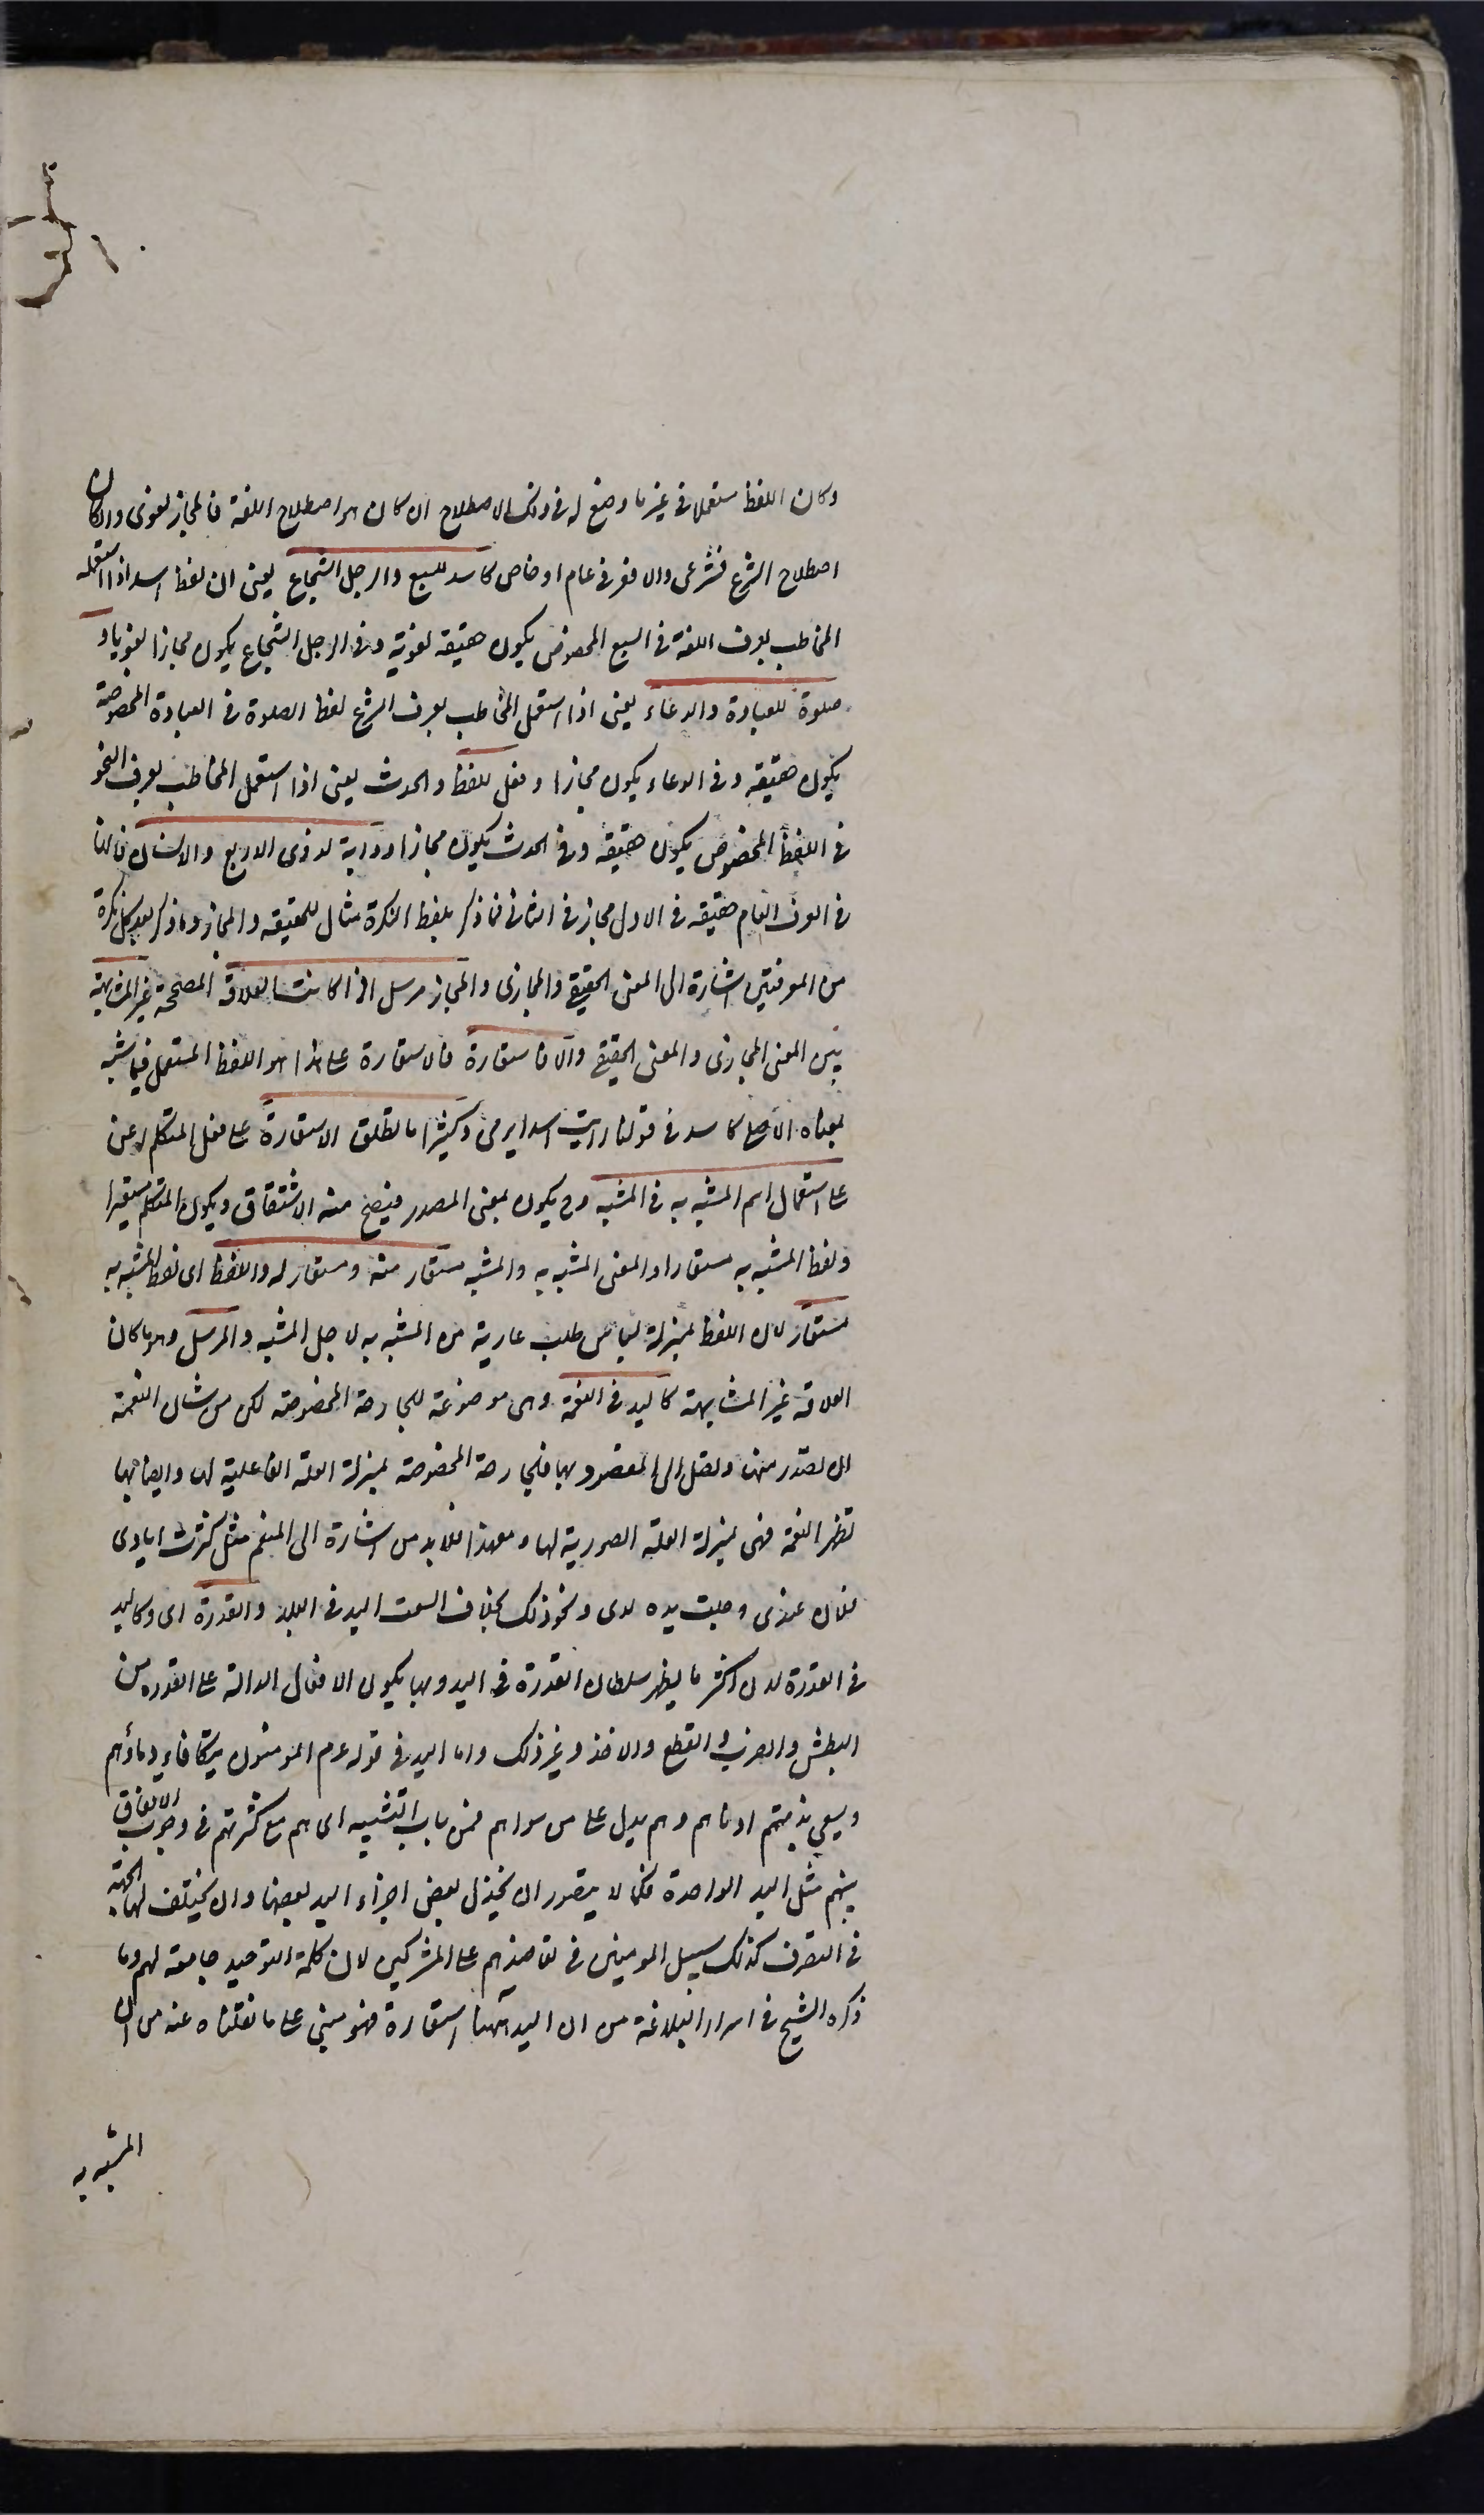 وكان اللفظ مستعملا في غير ما وضع له في ذلك الاصطلاح ان كان هو اصطلاح اللغة فالمجاز لغوى وان كان
اصطلاح الشرع فشرعى والا فعرفى عام او خاص كاسد للسبع والرجل الشجاع يعنى ان لفظ اسد اذا استعمله
المخاطب بعرف اللغة في السبع المخصوص يكون حقيقة لغوية وفى الرجل الشجاع يكون مجازا لغويا و
صلوة للعبادة والدعاء يعنى اذا استعمل المخاطب بعرف الشرع لفظ الصلوة في العبادة المخصوصة
يكون حقيقة وفى الدعاء يكون مجازا وفعل للفظ والحدث يعنى اذا استعمل المخاطب بعرف النحو
في اللفظ المخصوص يكون حقيقة وفى الحدث يكون مجازا ودابة لذوى الاربع والانسان فانها
في العرف العام حقيقة في الاول مجاز في الثانى فما ذكر بلفظ النكرة مثال للحقيقة والمجاز وما ذكر بعد كل نكرة
من المعرفتين اشارة الى المعنى الحقيقى والمجازى والمجاز مرسل ان كانت العلاقة المصححة غير المشابهة
بين المعنى المجازى والمعنى الحقيقى والا فاستعارة فالاستعارة على هذا هو اللفظ المستعمل فيما شبه
بمعناه الاصلى كاسد في قولنا رايت اسدا يرمى وكثيرا ما تطلق الاستعارة على فعل المتكلم اعنى
على استعمال اسم المشبه به في المشبه وح يكون بمعنى المصدر فيصح منه الاشتقاق ويكون المتكلم مستعيرا
ولفظ المشبه به مستعارا والمعنى المشبه به والمشبه مستعار منه ومستعار له واللفظ اى لفظ المشبه به
مستعار لان اللفظ بمنزلة لباس طلب عارية من المشبه به لاجل المشبه والمرسل وهو ما كان
العلاقة غير المشابهة كاليد في النعمة وهى موضوعة للجارحة المخصوصة لكن من شان النعمة
ان تصدر منها وتصل الى المقصود بها فالجارحة المخصوصة بمنزلة العلة الفاعلية لها وايضا بها
تظهر النعمة فهى بمنزلة العلة الصورية لها ومع هذا فلا بد من اشارة الى المنعم مثل كثرت ايادى
فلان عندى وجلت يده لدى ونحو ذلك بخلاف اتسعت اليد في البلد والقدرة اى وكاليد
في القدرة لان اكثر ما يظهر سلطان القدرة في اليد وبها يكون الافعال الدالة على القدرة من
البطش والضرب والقطع والاخذ وغير ذلك واما اليد في قوله عم المومنون يتكافاء دماؤهم
ويسعى بذمتهم ادناهم وهم يد على من سواهم فمن باب التشبيه اى هم مع كثرتهم في وجوب الاتفاق
بينهم مثل اليد الواحدة فكما لا يتصور ان يخذل بعض اجزاء اليد بعضها وان يختلف بها الجهة
في التصرف كذلك سبيل المومنين في تعاضدهم على المشركين لان كلمة التوحيد جامعة لهم وما
ذكره الشيخ في اسرار البلاغة من ان اليد ههنا استعارة فهو مبنى على ما نقلناه عنه من ان
المشبه به